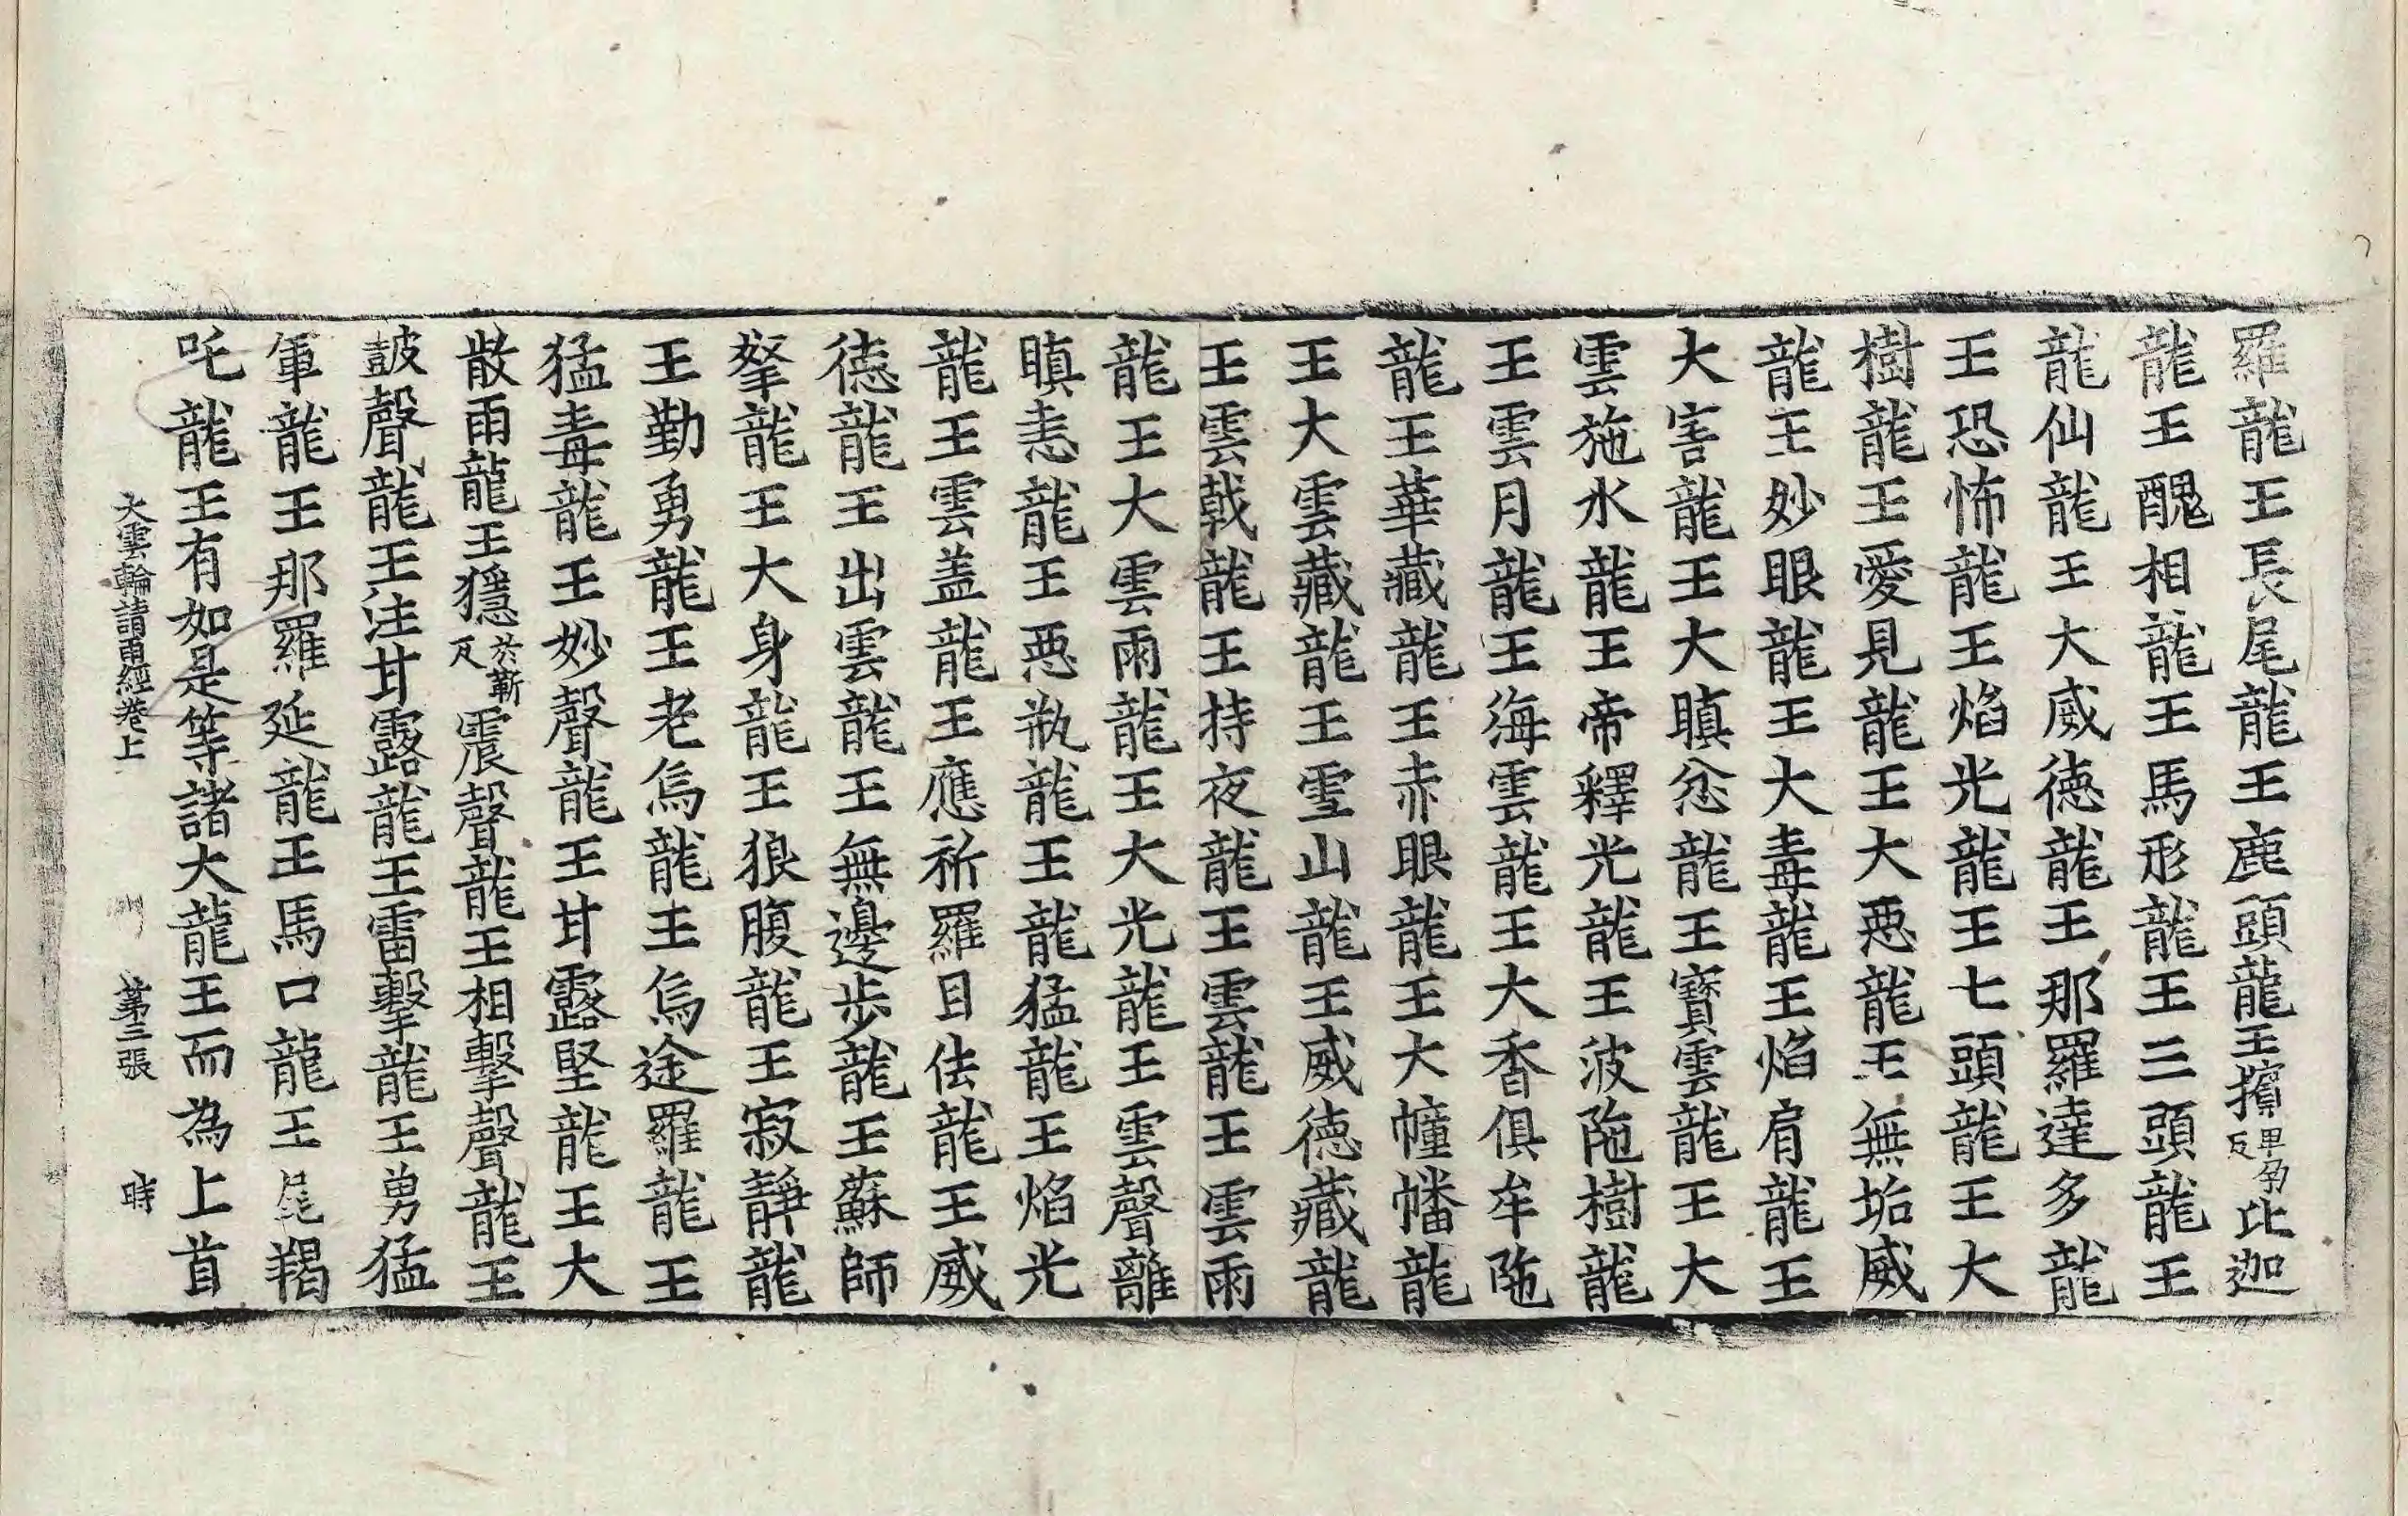 羅龍王長尾龍王鹿頭龍王擯卑孕反比迦
龍王醜相龍王馬形龍王三頭龍王
龍仙龍王大威徳龍王那羅達多龍
王恐怖龍王焰光龍王七頭龍王大
樹龍王愛見龍王大惡龍王無垢威
龍王妙眼龍王大毒龍王焰肩龍王
大害龍王大瞋忿龍王寶雲龍王大
雲施水龍王帝釋光龍王波陁樹龍
王雲月龍王海雲龍王大香俱牟陁
龍王華藏龍王赤眼龍王大幢幡龍
王大雲藏龍王雪山龍王威徳藏龍
王雲戟龍王持夜龍王雲龍王雲雨
龍王大雲雨龍王大光龍王雲聲離
瞋恚龍王惡瓶龍王龍猛龍王焰光
龍王雲盖龍王應祈羅目佉龍王威
徳龍王出雲龍王無邊步龍王蘇師
孥龍王大身龍王狼腹龍王寂靜龍
王勤勇龍王老烏龍王烏途羅龍王
猛毒龍王妙聲龍王甘露堅龍王大
散雨龍王隱於蘄反震聲龍王相擊聲龍王
皷聲龍王注甘露龍王雷擊龍王勇猛
軍龍王那羅延龍王馬口龍王尾羯
吒龍王有如是等諸大龍王而為上首
大雲輪請雨經卷上 第三張 時